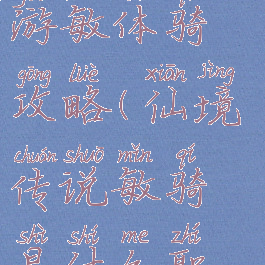 游敏体骑
gōng lüè xiān jìng
攻略(仙境
chuán shuō mǐn qí
传说敏骑
shì shí me zhí
是什么职